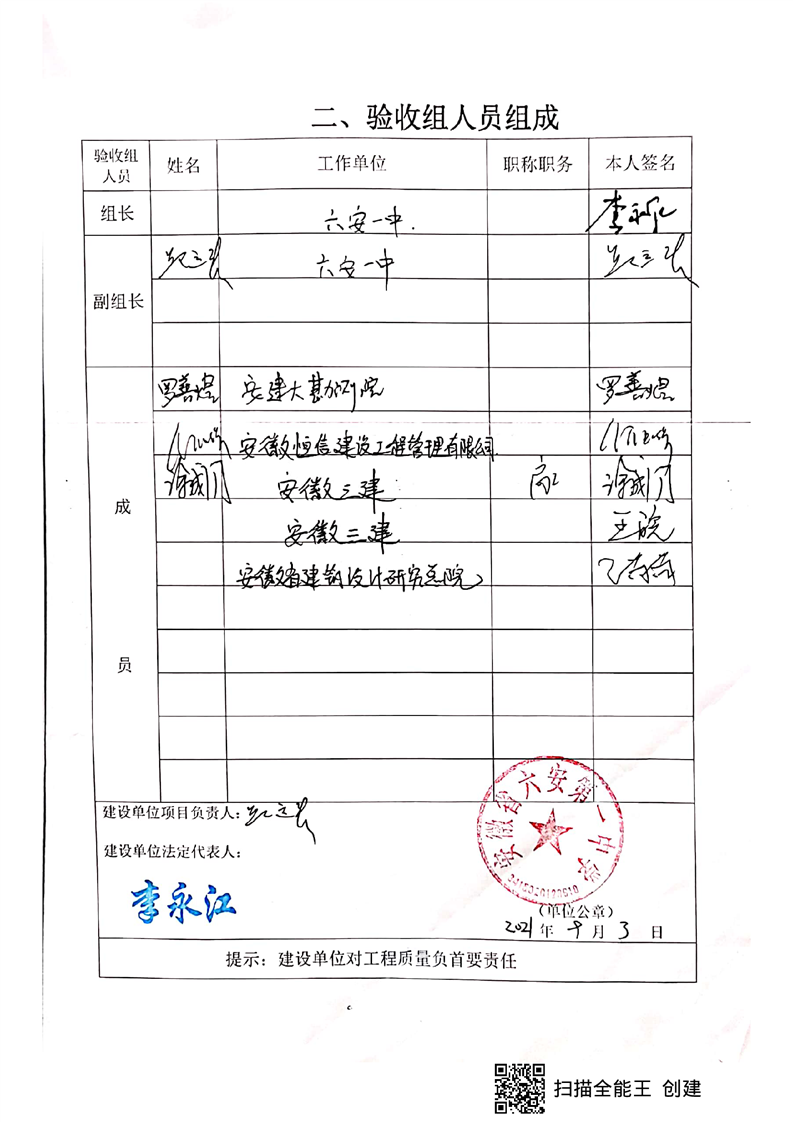 二、验收组人员组成
验收组人员 姓名 工作单位 职称职务 本人签名
组长 六安一中. 李永江
副组长 六安一中
成员
罗善煜 安建大勘研院 罗善煜
安徽恒信建设工程管理有限公司
安徽三建 高工
安徽三建 王
安徽省建筑设计研究总院
建设单位项目负责人:
建设单位法定代表人:
李永江
安徽省六安第一中学
(单位公章)
2021年 月3日
提示:建设单位对工程质量负首要责任
扫描全能王 创建